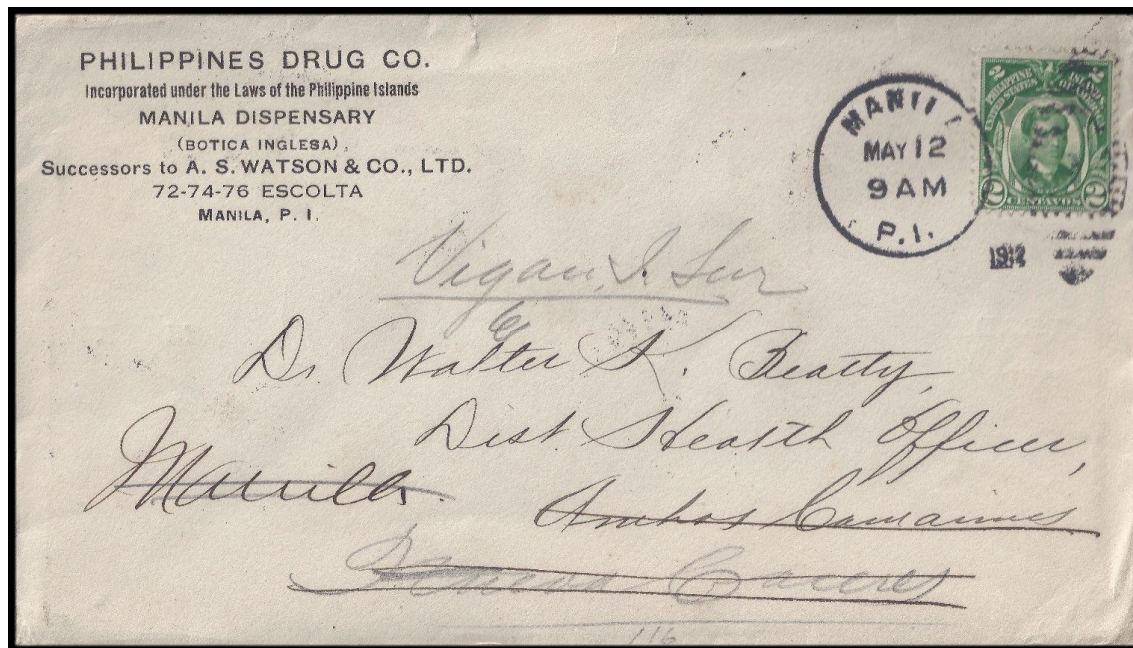 PHILIPPINES DRUG CO.
Incorporated under the Laws of the Philippine Islands
MANILA DISPENSARY
(BOTICA INGLESA),
Successors to A. S. WATSON & CO., LTD.
72-74-76 ESCOLTA
MANILA, P. I.
MANIL
MAY 12
9 AM
P.I.
1912
2 2
PHILIPPINE ISLANDS
UNITED STATES
2 CENTAVOS 2
Vigan, I. Sur
Dr. Walter K. Beatty,
Dist. Health Officer,
Manila.
Ambos Camarines
Nueva Caceres
116